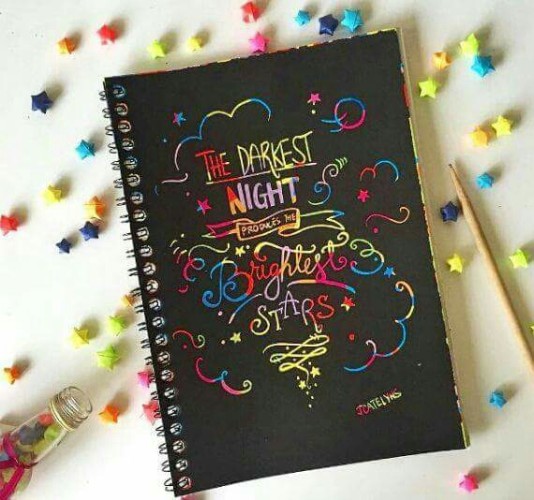 THE DARKEST
NIGHT
PRODUCES THE
Brightest
STARS